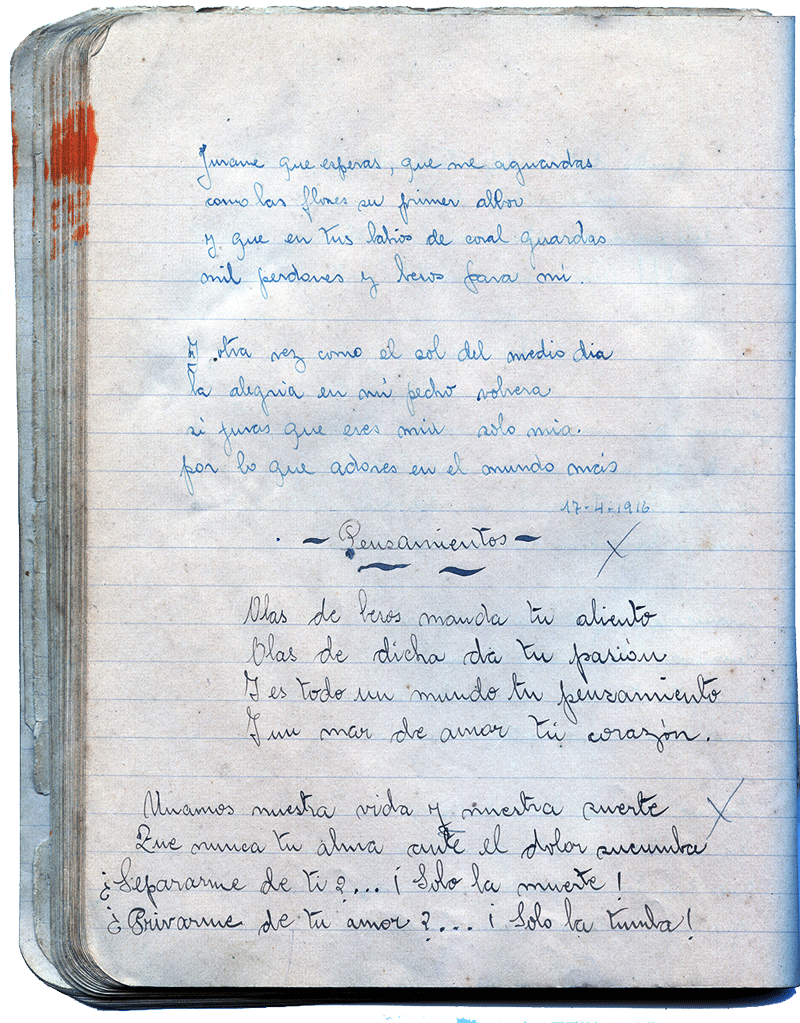 Jurame que esperas, que me aguardas
como las flores su primer albor
y que en tus labios de coral guardas
mil perdones y besos para mi.
Y otra vez como el sol del medio dia
la alegria en mi pecho volvera
si juras que eres mia solo mia.
por lo que adores en el mundo más
17-4-1916
- Pensamientos -
Olas de besos manda tu aliento
Olas de dicha da tu pasión
Y es todo un mundo tu pensamiento
Y un mar de amor tu corazón.
Unamos nuestra vida y nuestra suerte
Que nunca tu alma ante el dolor sucumba
¿Separarme de ti?... ¡Solo la muerte!
¿Privarme de tu amor?... ¡Solo la tumba!